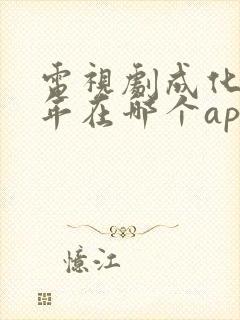 電視劇成化
年在哪个ap
憶江